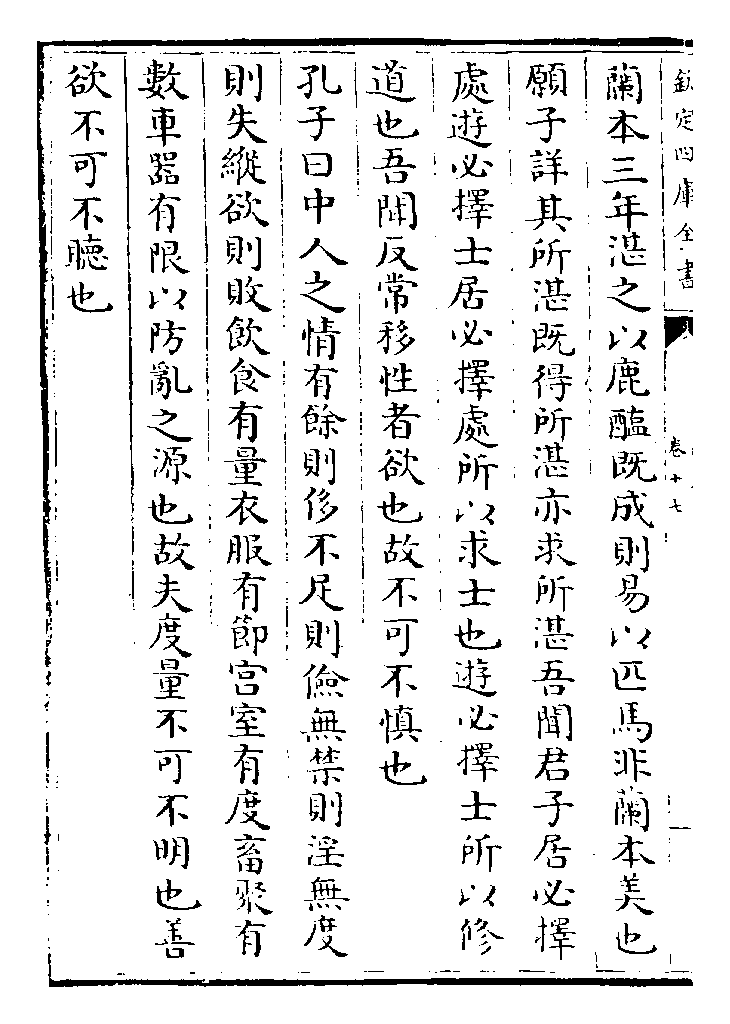 欽定四庫全書
卷十七
蘭本三年湛之以鹿醢既成則易以匹馬非蘭本美也
願子詳其所湛既得所湛亦求所湛吾聞君子居必擇
處遊必擇士居必擇處所以求士也遊必擇士所以修
道也吾聞反常移性者欲也故不可不慎也
孔子曰中人之情有餘則侈不足則儉無禁則淫無度
則失縱欲則敗飲食有量衣服有節宫室有度畜聚有
數車器有限以防亂之源也故夫度量不可不明也善
欲不可不聽也